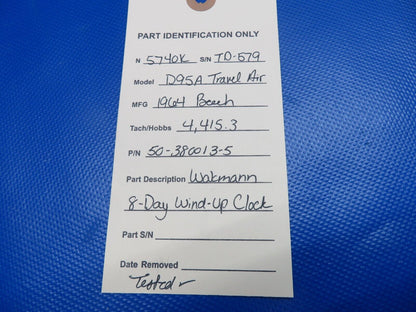 PART IDENTIFICATION ONLY
N 5740K S/N TD-579
Model D95A Travel Air
MFG 1964 Beech
Tach/Hobbs 4,415.3
P/N 50-380013-5
Part Description Wakmann
8-Day Wind-Up Clock
Part S/N
Date Removed
Tested ✓